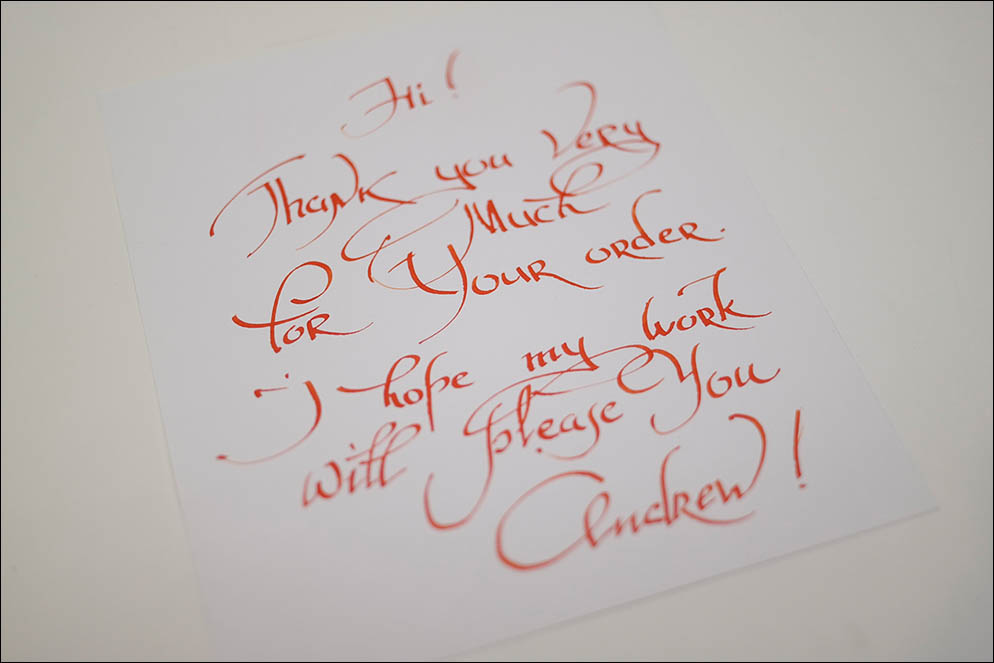 Hi!
Thank you Very
Much
for Your order.
I hope my work
will please You
Andrew!